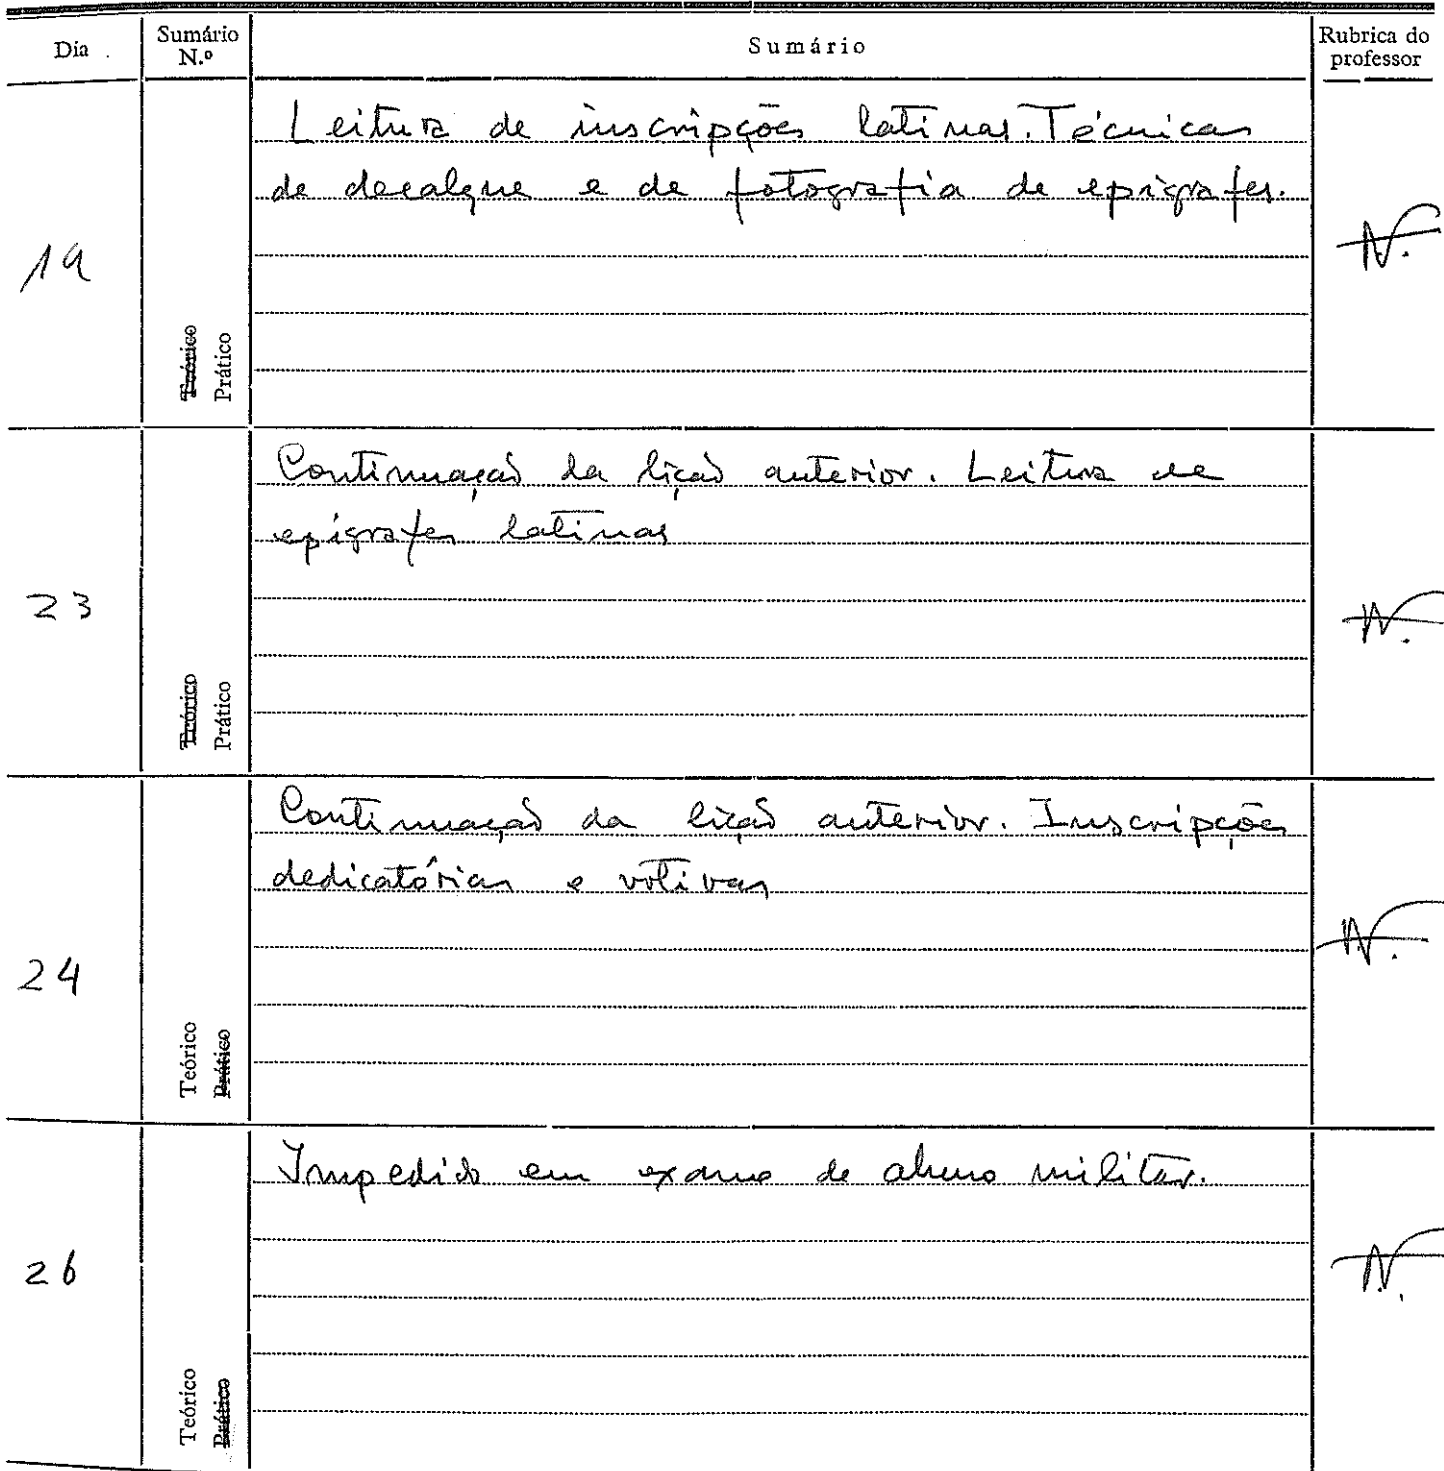 Dia
Sumário N.º
Sumário
Rubrica do professor
19
Teórico
Prático
Leitura de inscripções latinas. Técnicas
de decalque e de fotografia de epígrafes.
N.
23
Teórico
Prático
Continuação da lição anterior. Leitura de
epígrafes latinas
N.
24
Teórico
Prático
Continuação da lição anterior. Inscripções
dedicatórias e votivas
N.
26
Teórico
Prático
Impedido em exame de aluno militar.
N.